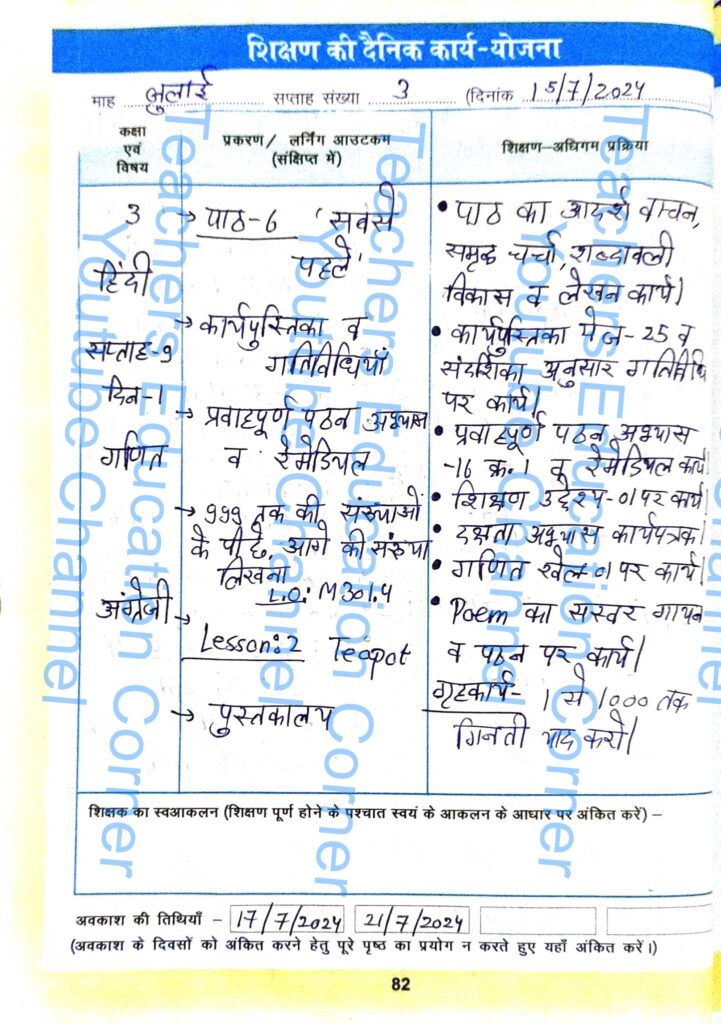 शिक्षण की दैनिक कार्य-योजना
माह जुलाई सप्ताह संख्या 3 (दिनांक 15/7/2024
कक्षा
एवं
विषय
प्रकरण/ लर्निंग आउटकम
(संक्षिप्त में)
शिक्षण-अधिगम प्रक्रिया
3
हिंदी
सप्ताह-9
दिन-1
गणित
अंग्रेजी
→ पाठ-6 'सबसे
पहले'
→ कार्यपुस्तिका व
गतिविधियाँ
→ प्रवाहपूर्ण पठन अभ्यास
व रेमेडियल
→ 999 तक की संख्याओं
के पीछे, आगे की संख्या
लिखना
L.O: M301.4
→ Lesson: 2 Teapot
→ पुस्तकालय
• पाठ का आदर्श वाचन,
समृद्ध चर्चा, शब्दावली
विकास व लेखन कार्य।
• कार्यपुस्तिका पेज-25 व
संदर्शिका अनुसार गतिविधि
पर कार्य।
• प्रवाहपूर्ण पठन अभ्यास
-16 क्र.1 व रेमेडियल कार्य।
• शिक्षण उद्देश्य-01 पर कार्य।
• दक्षता अभ्यास कार्यपत्रक।
• गणित खेल-01 पर कार्य।
• Poem का सस्वर गायन
व पठन पर कार्य।
गृहकार्य- 1 से 1000 तक
गिनती याद करो।
शिक्षक का स्वआकलन (शिक्षण पूर्ण होने के पश्चात स्वयं के आकलन के आधार पर अंकित करें) –
अवकाश की तिथियाँ – 17/7/2024 21/7/2024
(अवकाश के दिवसों को अंकित करने हेतु पूरे पृष्ठ का प्रयोग न करते हुए यहाँ अंकित करें।)
82
Teachers Education Corner
Youtube Channel
Teachers Education Corner
Youtube Channel
Teachers Education Corner
Youtube Channel